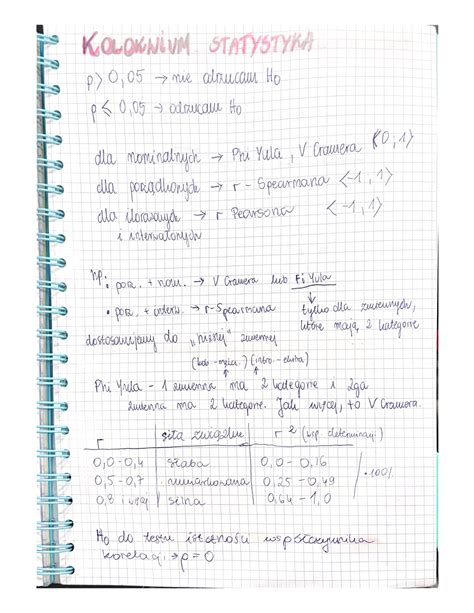 KOLOKVIUM STATYSTYKA
p > 0,05 → nie odrzucam H₀
p ≤ 0,05 → odrzucam H₀
dla nominalnych → Phi Yula, V Cramera ⟨0,1⟩
dla porządkowych → r - Spearmana <-1,1>
dla ilorazowych → r Pearsona <-1,1>
i interwałowych
np.
• porz. + nom. → V Cramera lub Fi Yula
• porz. + interw. → r-Spearmana
↓
tylko dla zmiennych,
które mają 2 kategorie
dostosowujemy do "niższej" zmiennej
(kob.-mężcz.) (intro-ekstra)
Phi Yula - 1 zmienna ma 2 kategorie i 2ga
zmienna ma 2 kategorie. Jak więcej, to V Cramera.
r | siła związku | r² (wsp. determinacji)
0,0-0,4 | słaba | 0,0-0,16
0,5-0,7 | umiarkowana | 0,25-0,49 | ·100%
0,8 i więcej | silna | 0,64-1,0
H₀ do testu istotności współczynnika
korelacji → ρ = 0